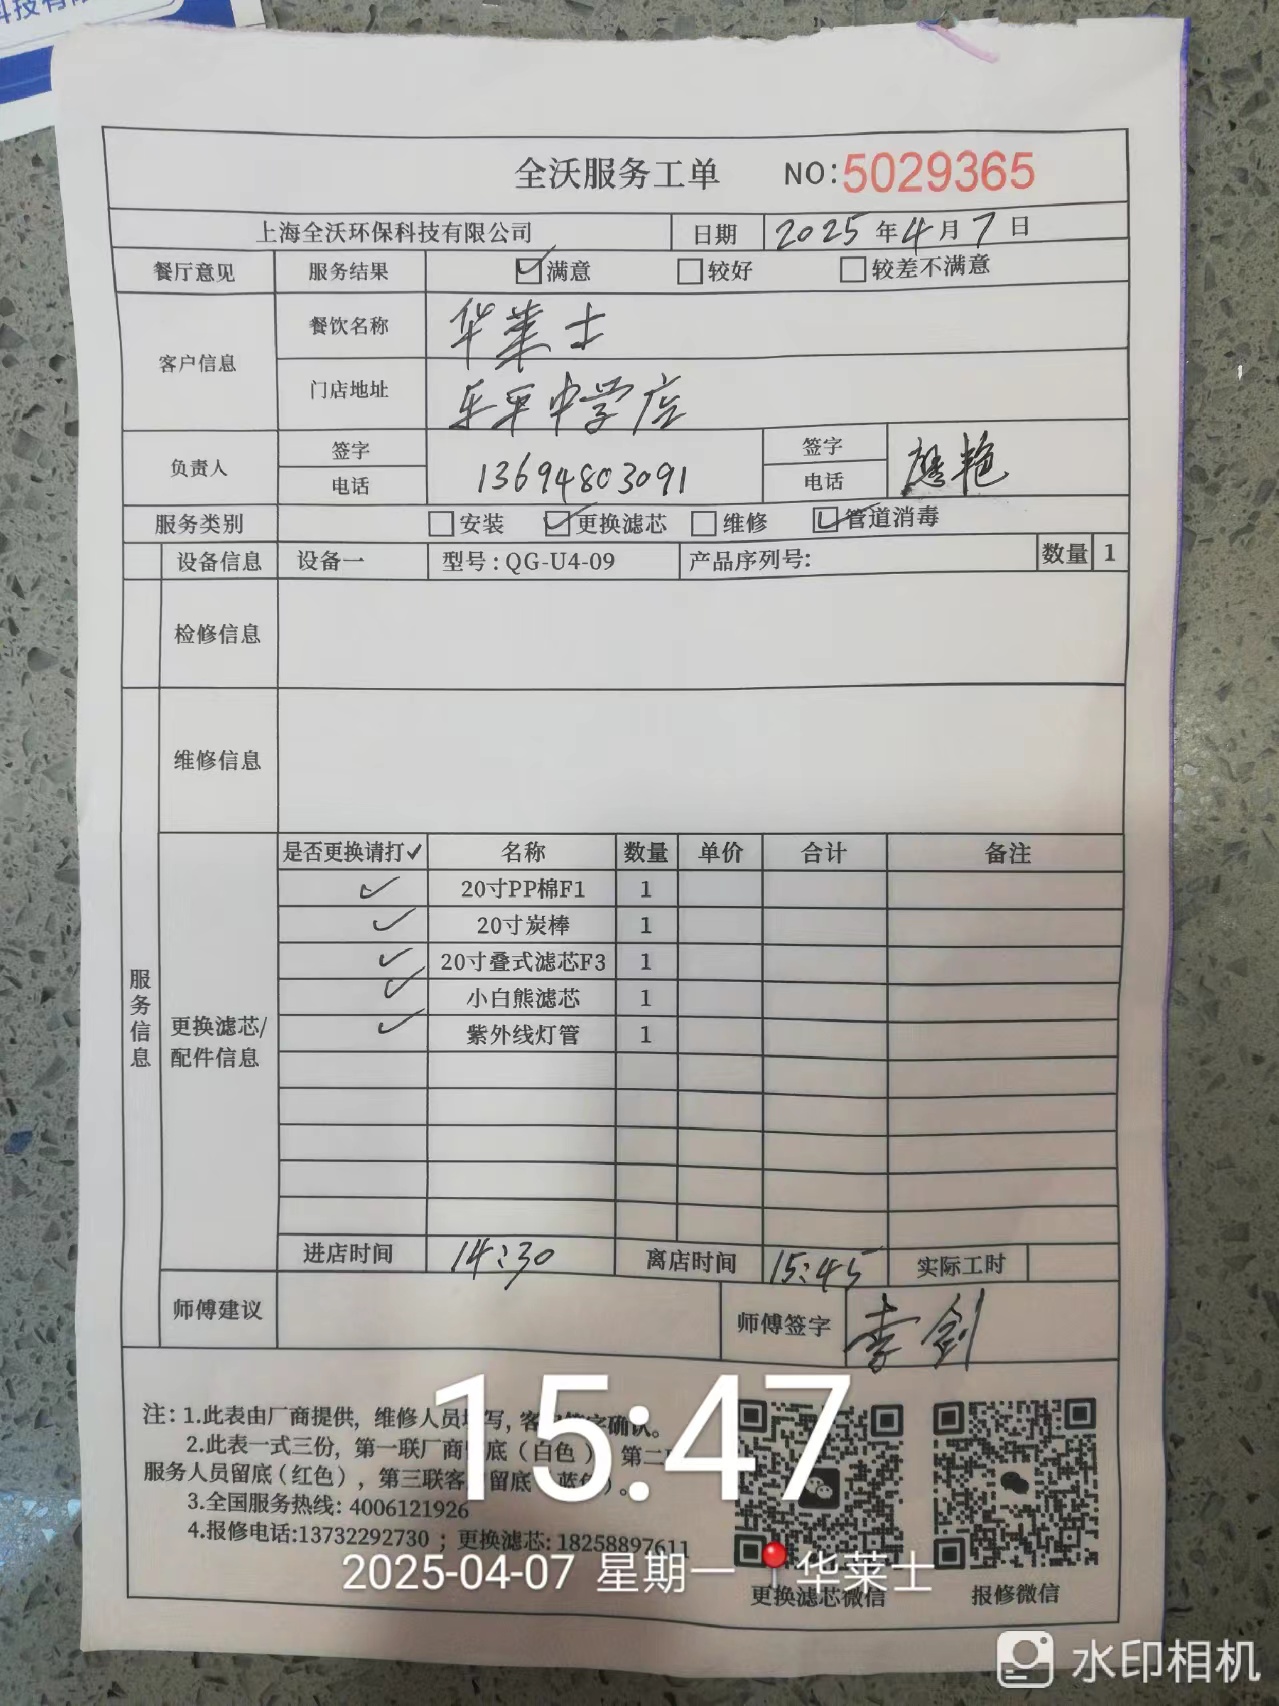 科技有限
全沃服务工单 NO:5029365
上海全沃环保科技有限公司 日期 2025年4月7日
餐厅意见 服务结果 ☑满意 □较好 □较差不满意
客户信息 餐饮名称 华莱士
门店地址 乐平中学店
负责人 签字 电话 13694803091 签字 电话 艳
服务类别 □安装 ☑更换滤芯 □维修 ☑管道消毒
设备信息 设备一 型号:QG-U4-09 产品序列号: 数量 1
检修信息
维修信息
服务信息
更换滤芯/配件信息
是否更换请打✓ 名称 数量 单价 合计 备注
✓ 20寸PP棉F1 1
✓ 20寸炭棒 1
✓ 20寸叠式滤芯F3 1
✓ 小白熊滤芯 1
✓ 紫外线灯管 1
进店时间 14:30 离店时间 15:45 实际工时
师傅建议 师傅签字 李剑
注:1.此表由厂商提供,维修人员填写,客户签字确认。
2.此表一式三份,第一联厂商留底(白色),第二
服务人员留底(红色),第三联客 留底 蓝色)。
3.全国服务热线:4006121926
4.报修电话:13732292730;更换滤芯:18258897611
更换滤芯微信 报修微信
15:47
2025-04-07 星期一 华莱士
水印相机